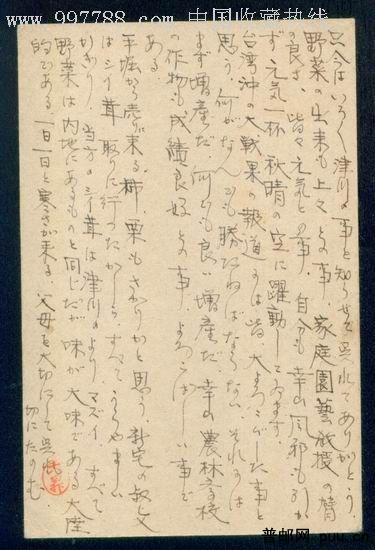 www.997788.com 中国收藏热线
只今はいろく津川の事を知らせて呉れてありがとう、
野菜の出来も上々との事、家庭園藝放援の賛
の良さ、皆々元気との事、自分も幸ひ風邪も引か
ず元気一杯秋晴の空に躍動してゐます
台湾沖の大戦果の報道には皆大よろこびした事と
思う、何がなんでも勝たねばならない、それには
まず増産だ、何よりも良い増産だ、幸ひ農林学校
の作物も成績良好との事、よろこばしい事で
ある
平堀から売りに来る柿、栗もさかりかと思う、新宅の叔父
はシイ茸取りに行つたかしら、すべてうらやましい
かぎり、当方のシイ茸は津川のよりマズイ、すべて
野菜は内地にあるものと同じだが味が大味である、大陸
的である、一日一日と寒さが来る、父母を大切にして呉れ
切にたのむ
普邮网-puu.cn